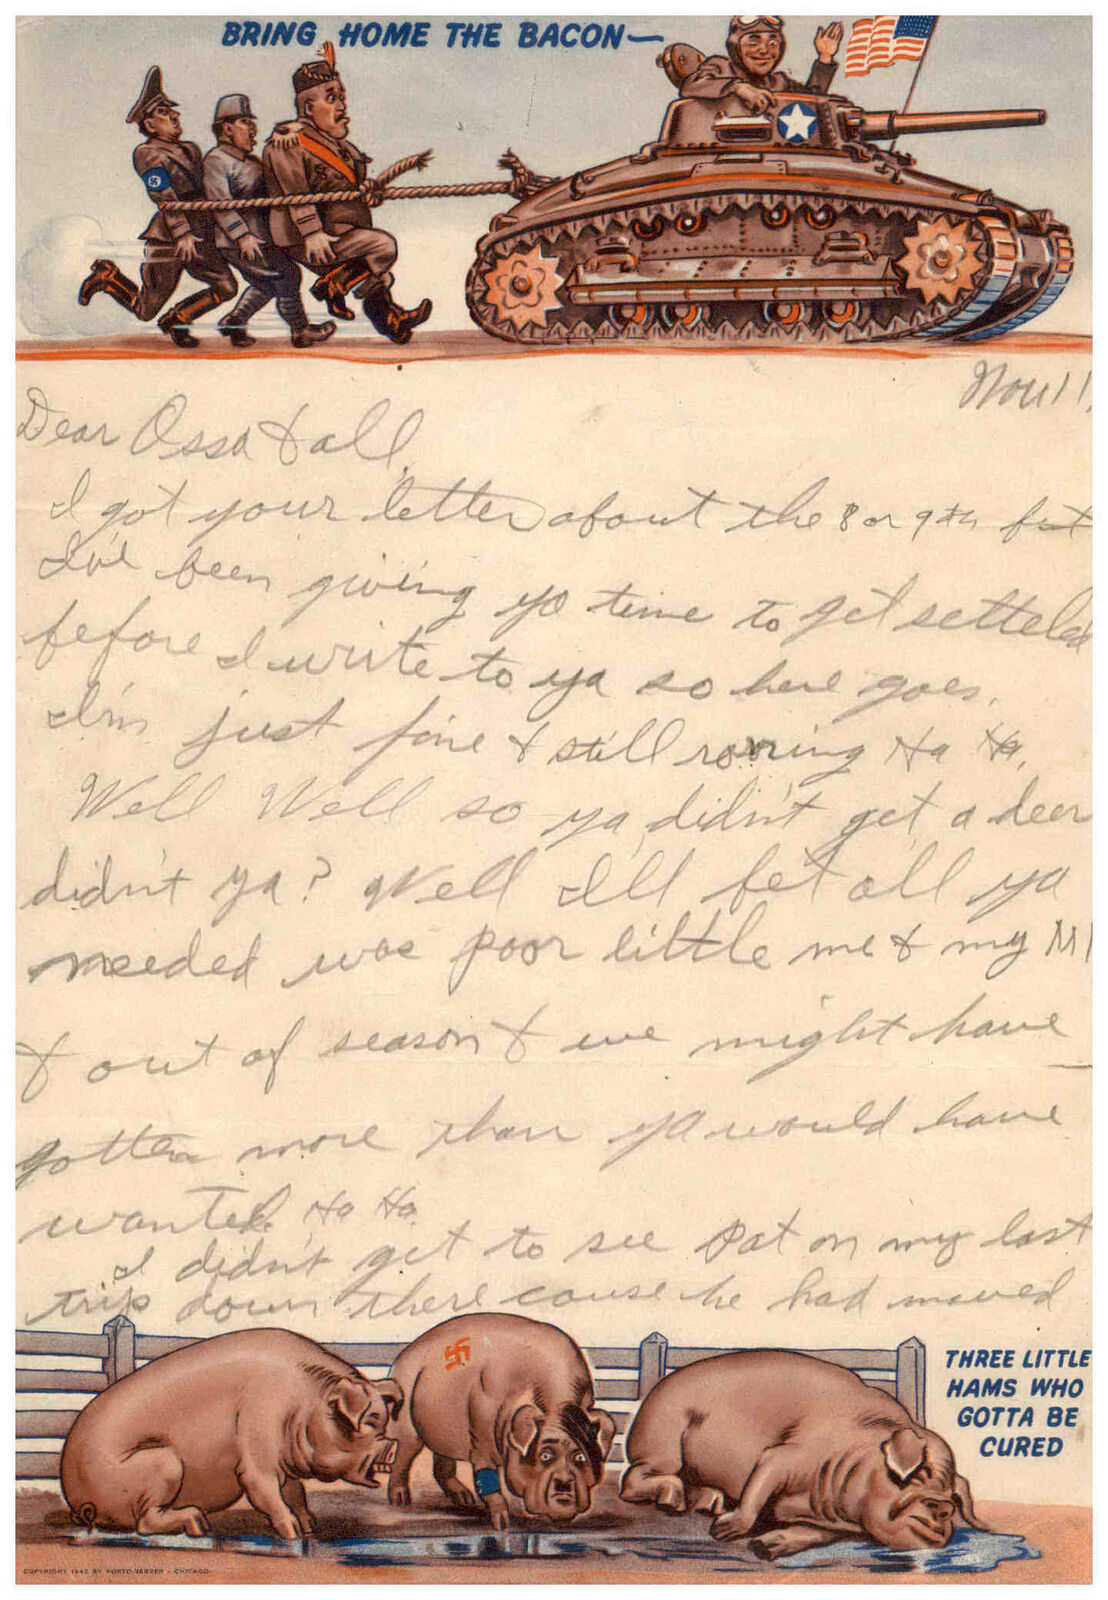 BRING HOME THE BACON—
Nov 11,
Dear Ossa & all,
I got your letter about the 8 or 9th but
I've been giving yo time to get setteled
before I write to ya so here goes.
I'm just fine & still roaring Ha Ha.
Well Well so ya didn't get a deer
didn't ya? Well I'll bet all ya
needed was poor little me & my M1
& out of season & we might have
gotten more than ya would have
wanted. Ha Ha.
I didn't get to see Pat on my last
trip down there cause he had moved
THREE LITTLE
HAMS WHO
GOTTA BE
CURED
COPYRIGHT 1942 BY - CHICAGO